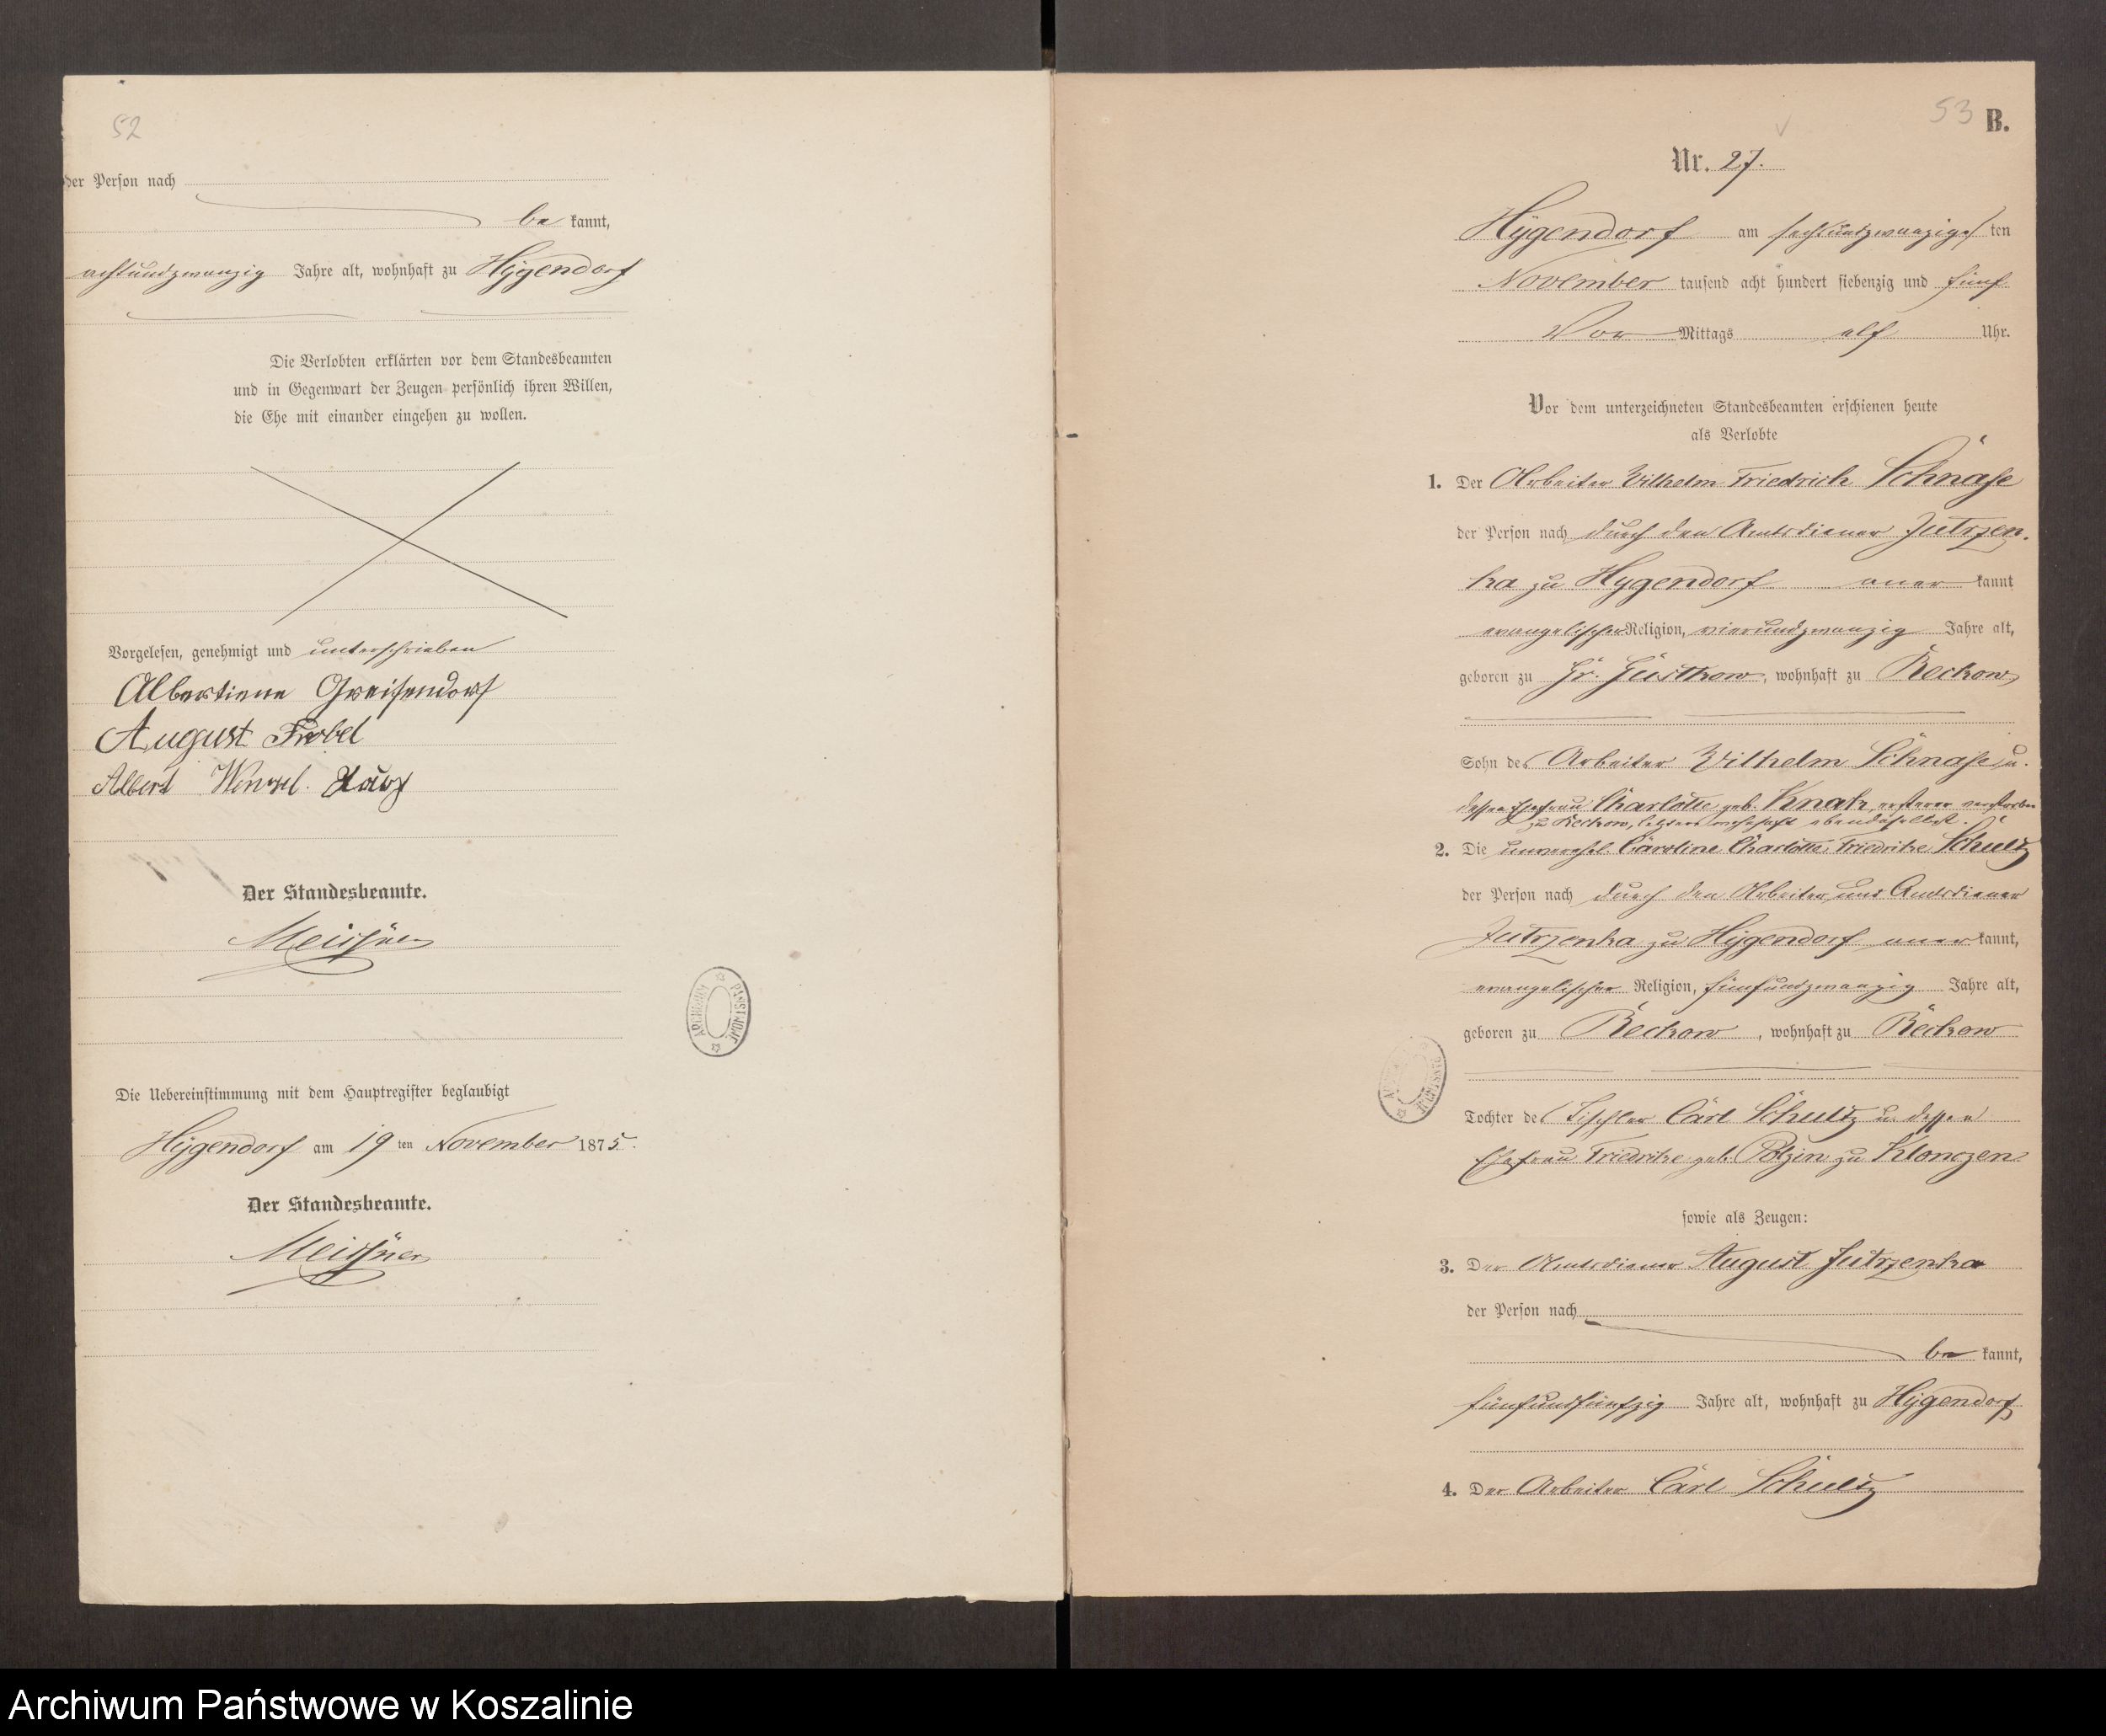 52
der Person nach
be kannt,
achtundzwanzig Jahre alt, wohnhaft zu Hygendorf
Die Verlobten erklärten vor dem Standesbeamten
und in Gegenwart der Zeugen persönlich ihren Willen,
die Ehe mit einander eingehen zu wollen.
Vorgelesen, genehmigt und unterschrieben
Albertiene Greifendorf
August
Albert Wenzel.
Der Standesbeamte.
Meissner
Die Uebereinstimmung mit dem Hauptregister beglaubigt
Hygendorf am 19 ten November 1875.
Der Standesbeamte.
Meissner
ARCHIWUM PAŃSTWOWE
53 B.
Nr. 27.
Hygendorf am sechsundzwanzigs ten
November tausend acht hundert siebenzig und fünf
Vor Mittags elf Uhr.
Vor dem unterzeichneten Standesbeamten erschienen heute
als Verlobte
1. Der Arbeiter Wilhelm Friedrich Schnase
der Person nach durch den Amtsdiener Jutrzen-
ka zu Hygendorf aner kannt
evangelischer Religion, vierundzwanzig Jahre alt,
geboren zu Gr. Güstkow, wohnhaft zu Reckow
Sohn des Arbeiter Wilhelm Schnase u.
dessen Ehefrau Charlotte geb. Knak, ersterer verstorben
zu Reckow, letztere wohnhaft ebendaselbst.
2. Die unverehel. Caroline Charlotte Friedrike Schultz
der Person nach durch den Arbeiter und Amtsdiener
Jutrzenka zu Hygendorf aner kannt,
evangelischer Religion, fünfundzwanzig Jahre alt,
geboren zu Reckow, wohnhaft zu Reckow
ARCHIWUM PAŃSTWOWE
Tochter des Tischler Carl Schultz u. dessen
Ehefrau Friedrike geb. Polzin zu Klonczen
sowie als Zeugen:
3. Der Amtsdiener August Jutrzenka
der Person nach
be kannt,
fünfundfünfzig Jahre alt, wohnhaft zu Hygendorf
4. Der Arbeiter Carl Schultz
Archiwum Państwowe w Koszalinie